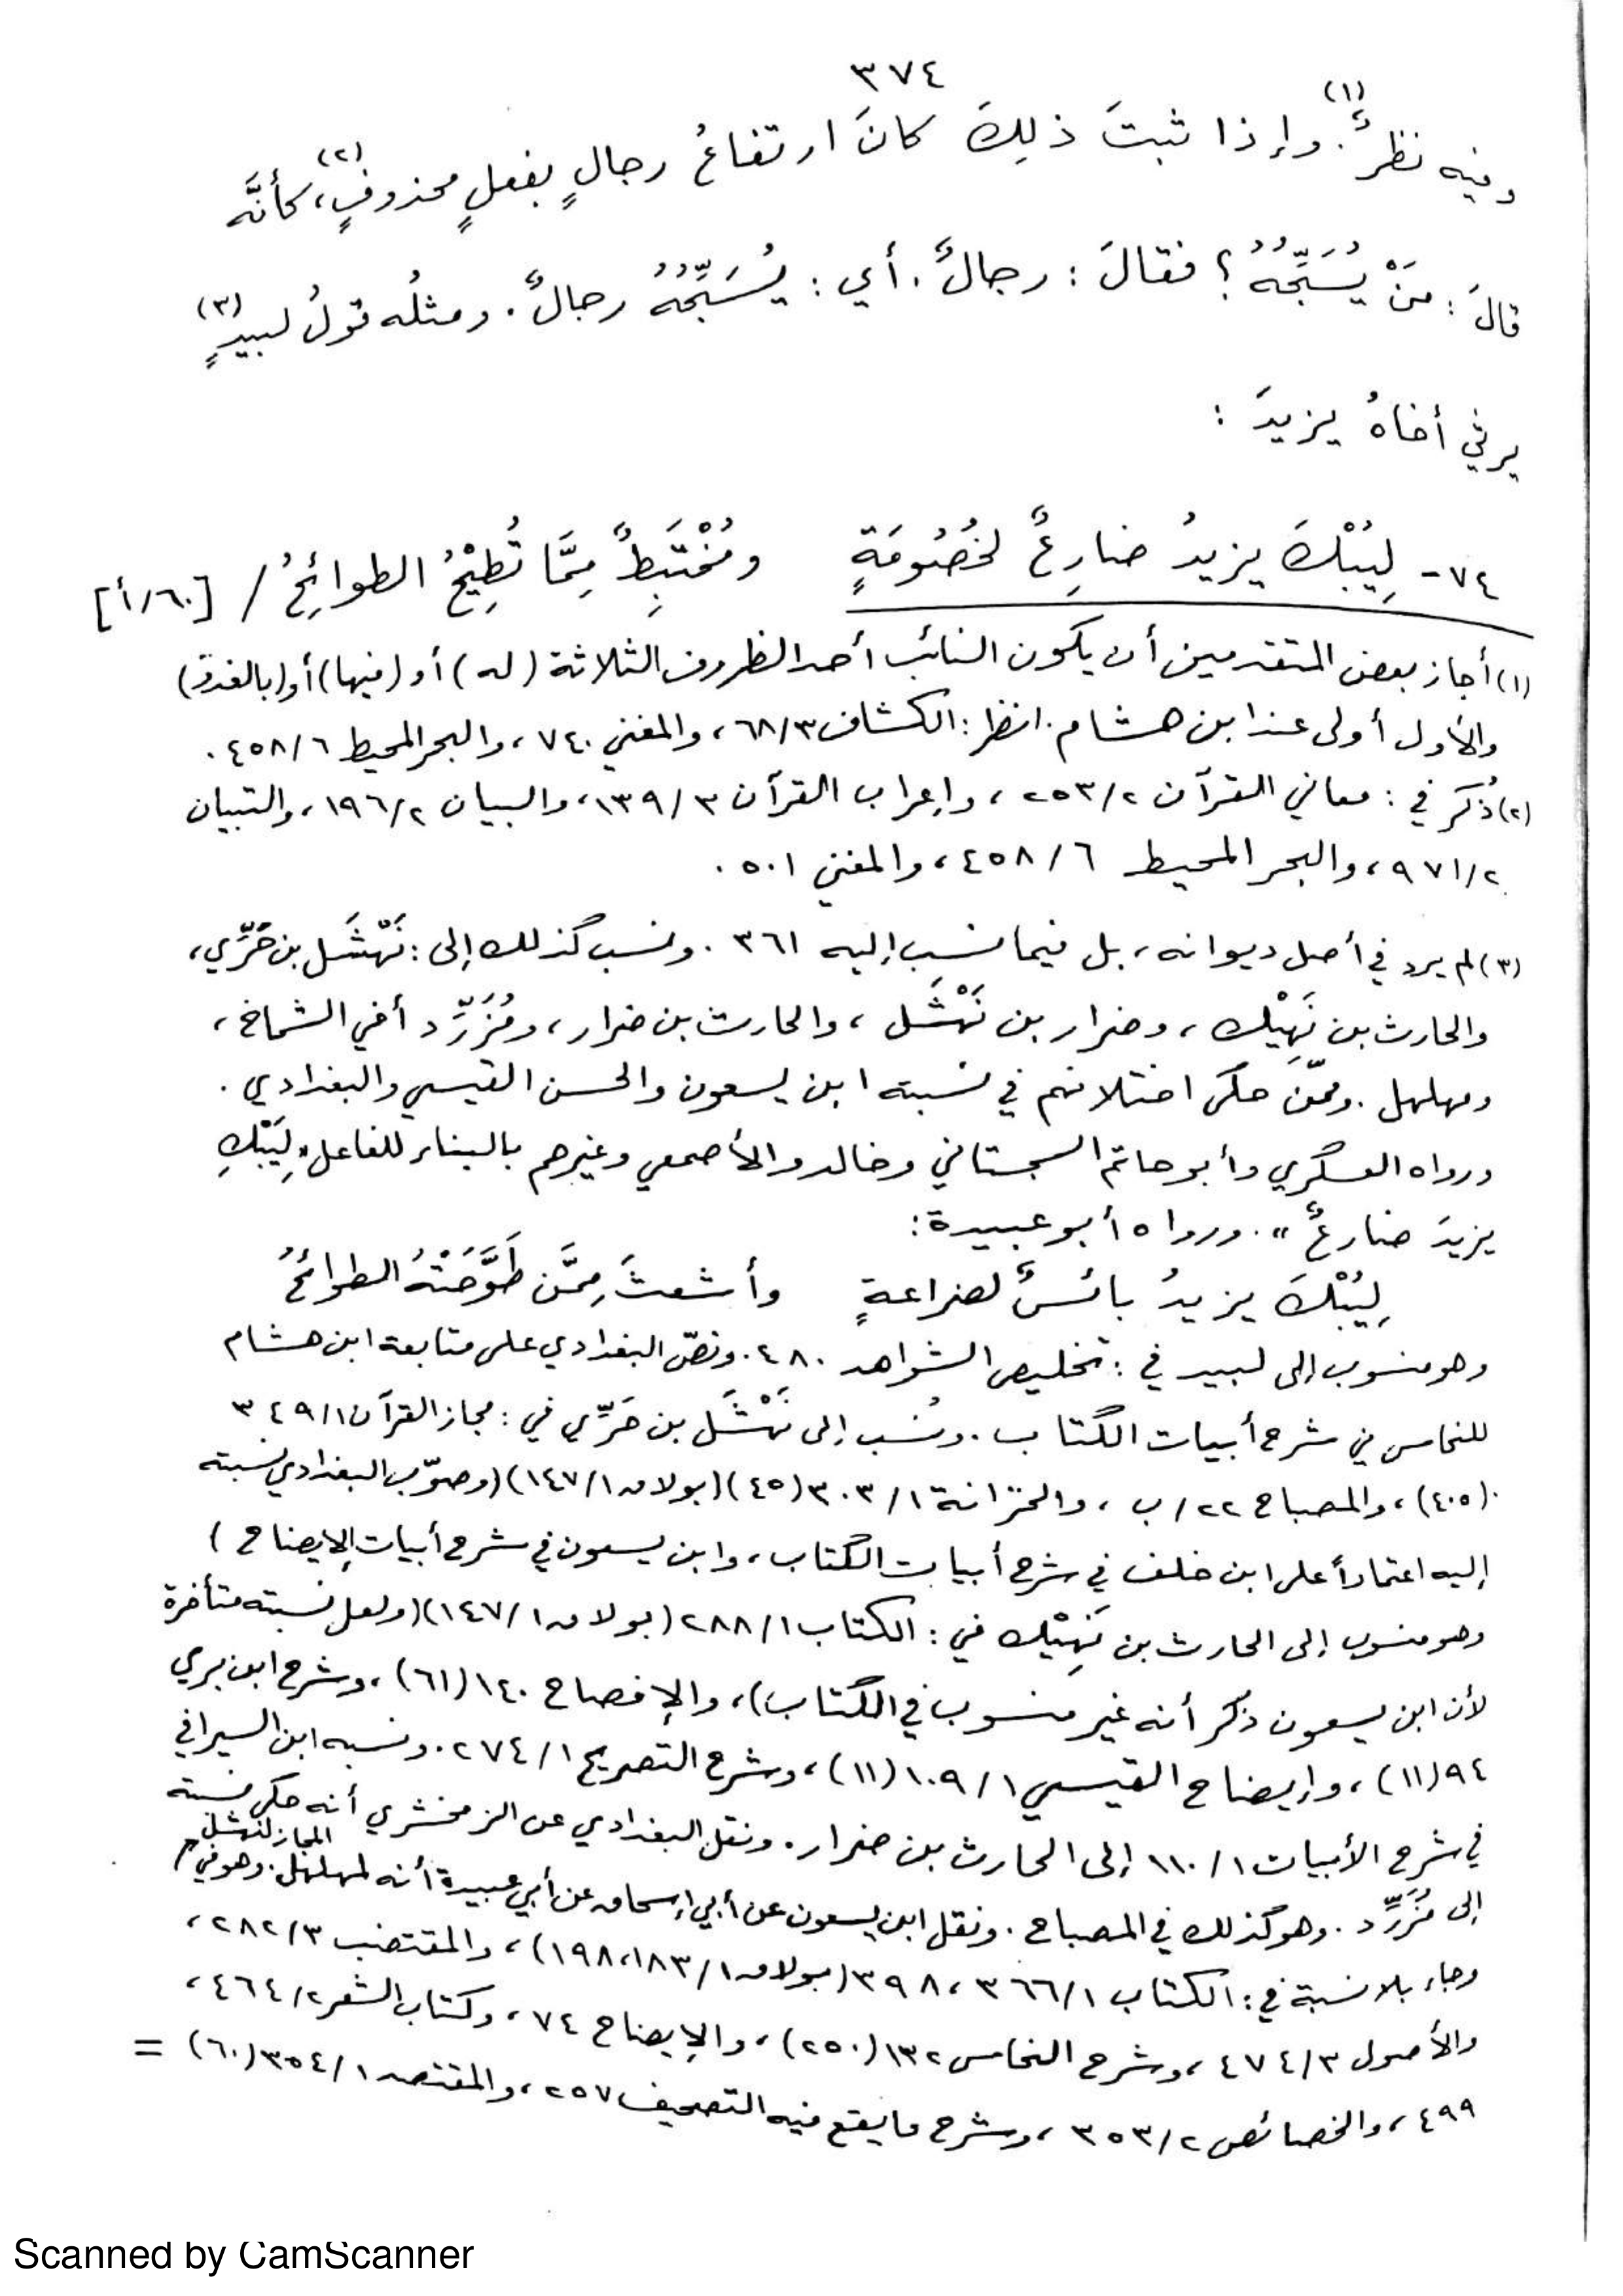 ٣٧٤
وفيه نظرٌ(١). وإذا ثبتَ ذلِكَ كانَ ارتفاعُ رجالٍ بفعلٍ محذوفٍ(٢)، كأنَّه
قالَ: مَنْ يُسَبِّحُهُ؟ فقالَ: رجالٌ. أي: يُسَبِّحُهُ رجالٌ. ومثلُه قولُ لبيدٍ(٣)
يرثي أخاهُ يزيدَ:
٧٤- لِيُبْكَ يزيدُ ضارِعٌ لخُصُومَةٍ ومُخْتَبِطٌ مِمَّا تُطِيْحُ الطوائِحُ / [٦٠/أ]
(١) أجاز بعض المتقدمين أن يكون النائب أحد الظروف الثلاثة (له) أو (فيها) أو (بالغدوّ)
والأول أولى عند ابن هشام. انظر: الكشاف ٦٨/٣، والمغني ٧٤٠، والبحر المحيط ٤٥٨/٦.
(٢) ذُكر في: معاني القرآن ٢٥٣/٢، وإعراب القرآن ١٣٩/٣، والبيان ١٩٦/٢، والتبيان
٩٧١/٢، والبحر المحيط ٤٥٨/٦، والمغني ٥٠١.
(٣) لم يرد في أصل ديوانه، بل فيما نسب إليه ٣٦١. ونسب كذلك إلى: نَهْشَل بن حَرِّي،
والحارث بن نَهِيْك، وضرار بن نَهْشَل، والحارث بن ضرار، ومُزَرِّد أخي الشماخ،
ومهلهل. وممّن حكى اختلافهم في نسبته ابن يسعون والحسن القيسي والبغدادي.
ورواه العسكري وأبو حاتم السجستاني وخالد والأصمعي وغيرهم بالبناء للفاعل "لِيَبْكِ
يزيدَ ضارعٌ". ورواه أبو عبيدة:
لِيُبْكَ يزيدُ بائسٌ لضراعةٍ وأشعثَ مِمَّن طَوَّحَتْهُ الطوائحُ
وهو منسوب إلى لبيد في: تخليص الشواهد ٤٨٠. ونصّ البغدادي على متابعة ابن هشام
للنحاس في شرح أبيات الكتاب. ونُسب إلى نَهْشَل بن حَرِّي في: مجاز القرآن ٣٤٩/١
(٤٠٥)، والمصباح ٢٢/ب، والخزانة ٣٠٣/١ (٤٥) (بولاق ١٤٧/١) (وصوّب البغدادي نسبته
إليه اعتماداً على ابن خلف في شرح أبيات الكتاب، وابن يسعون في شرح أبيات الإيضاح)
وهو منسوب إلى الحارث بن نَهِيْك في: الكتاب ٢٨٨/١ (بولاق ١٤٧/١) (ولعل نسبته متأخرة
لأن ابن يسعون ذكر أنه غير منسوب في الكتاب)، والإفصاح ١٤٠ (٦١)، وشرح ابن بري
٩٤ (١١)، وإيضاح القيسي ١٠٩/١ (١١)، وشرح التصريح ٢٧٤/١. ونسبه ابن السيرافي
في شرح الأبيات ١١٠/١ إلى الحارث بن ضرار. ونقل البغدادي عن الزمخشري أنه حكى نسبته
إلى مُزَرِّد. وهو كذلك في المصباح. ونقل ابن يسعون عن أبي إسحاق عن أبي عبيدة أنه لمهلهل. وهو في المجاز لنهشل
وجاء بلا نسبة في: الكتاب ٣٦٦/١، ٣٩٨ (بولاق ١٨٣/١، ١٩٨)، والمقتضب ٢٨٢/٣،
والأصول ٤٧٤/٣، وشرح النحاس ١٣٢ (٢٥٠)، والإيضاح ٧٤، وكتاب الشعر ٤٦٤/٢،
٤٩٩، والخصائص ٣٥٣/٢، وشرح ما يقع فيه التصحيف ٢٥٧، والمقتصد ٣٥٤/١ (٦٠) =
Scanned by CamScanner